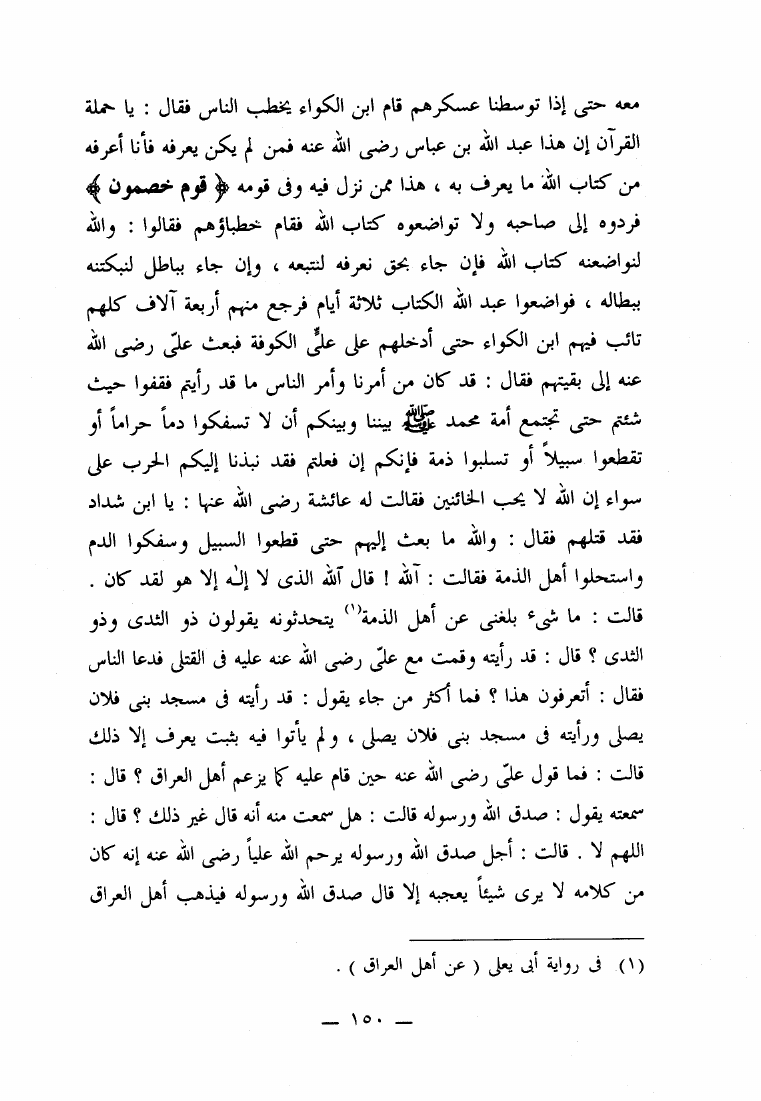 معه حتى إذا توسطنا عسكرهم قام ابن الكواء يخطب الناس فقال : يا حملة
القرآن إن هذا عبد الله بن عباس رضى الله عنه فمن لم يكن يعرفه فأنا أعرفه
من كتاب الله ما يعرف به ، هذا ممن نزل فيه وفى قومه ﴿ قوم خصمون ﴾
فردوه إلى صاحبه ولا تواضعوه كتاب الله فقام خطباؤهم فقالوا : والله
لنواضعنه كتاب الله فإن جاء بحق نعرفه لنتبعه ، وإن جاء بباطل لنبكتنه
بباطله ، فواضعوا عبد الله الكتاب ثلاثة أيام فرجع منهم أربعة آلاف كلهم
تائب فيهم ابن الكواء حتى أدخلهم على علىٍّ الكوفة فبعث علىّ رضى الله
عنه إلى بقيتهم فقال : قد كان من أمرنا وأمر الناس ما قد رأيتم فقفوا حيث
شئتم حتى تجتمع أمة محمد ﷺ بيننا وبينكم أن لا تسفكوا دماً حراماً أو
تقطعوا سبيلاً أو تسلبوا ذمة فإنكم إن فعلتم فقد نبذنا إليكم الحرب على
سواء إن الله لا يحب الخائنين فقالت له عائشة رضى الله عنها : يا ابن شداد
فقد قتلهم فقال : والله ما بعث إليهم حتى قطعوا السبيل وسفكوا الدم
واستحلوا أهل الذمة فقالت : آلله ! قال آلله الذى لا إلٰه إلا هو لقد كان .
قالت : ما شىء بلغنى عن أهل الذمة(١) يتحدثونه يقولون ذو الثدى وذو
الثدى ؟ قال : قد رأيته وقمت مع علىّ رضى الله عنه عليه فى القتلى فدعا الناس
فقال : أتعرفون هذا ؟ فما أكثر من جاء يقول : قد رأيته فى مسجد بنى فلان
يصلى ورأيته فى مسجد بنى فلان يصلى ، ولم يأتوا فيه بثبت يعرف إلا ذلك
قالت : فما قول علىّ رضى الله عنه حين قام عليه كما يزعم أهل العراق ؟ قال :
سمعته يقول : صدق الله ورسوله قالت : هل سمعت منه أنه قال غير ذلك ؟ قال :
اللهم لا . قالت : أجل صدق الله ورسوله يرحم الله علياً رضى الله عنه إنه كان
من كلامه لا يرى شيئاً يعجبه إلا قال صدق الله ورسوله فيذهب أهل العراق
(١) فى رواية أبى يعلى ( عن أهل العراق ) .
— ١٥٠ —